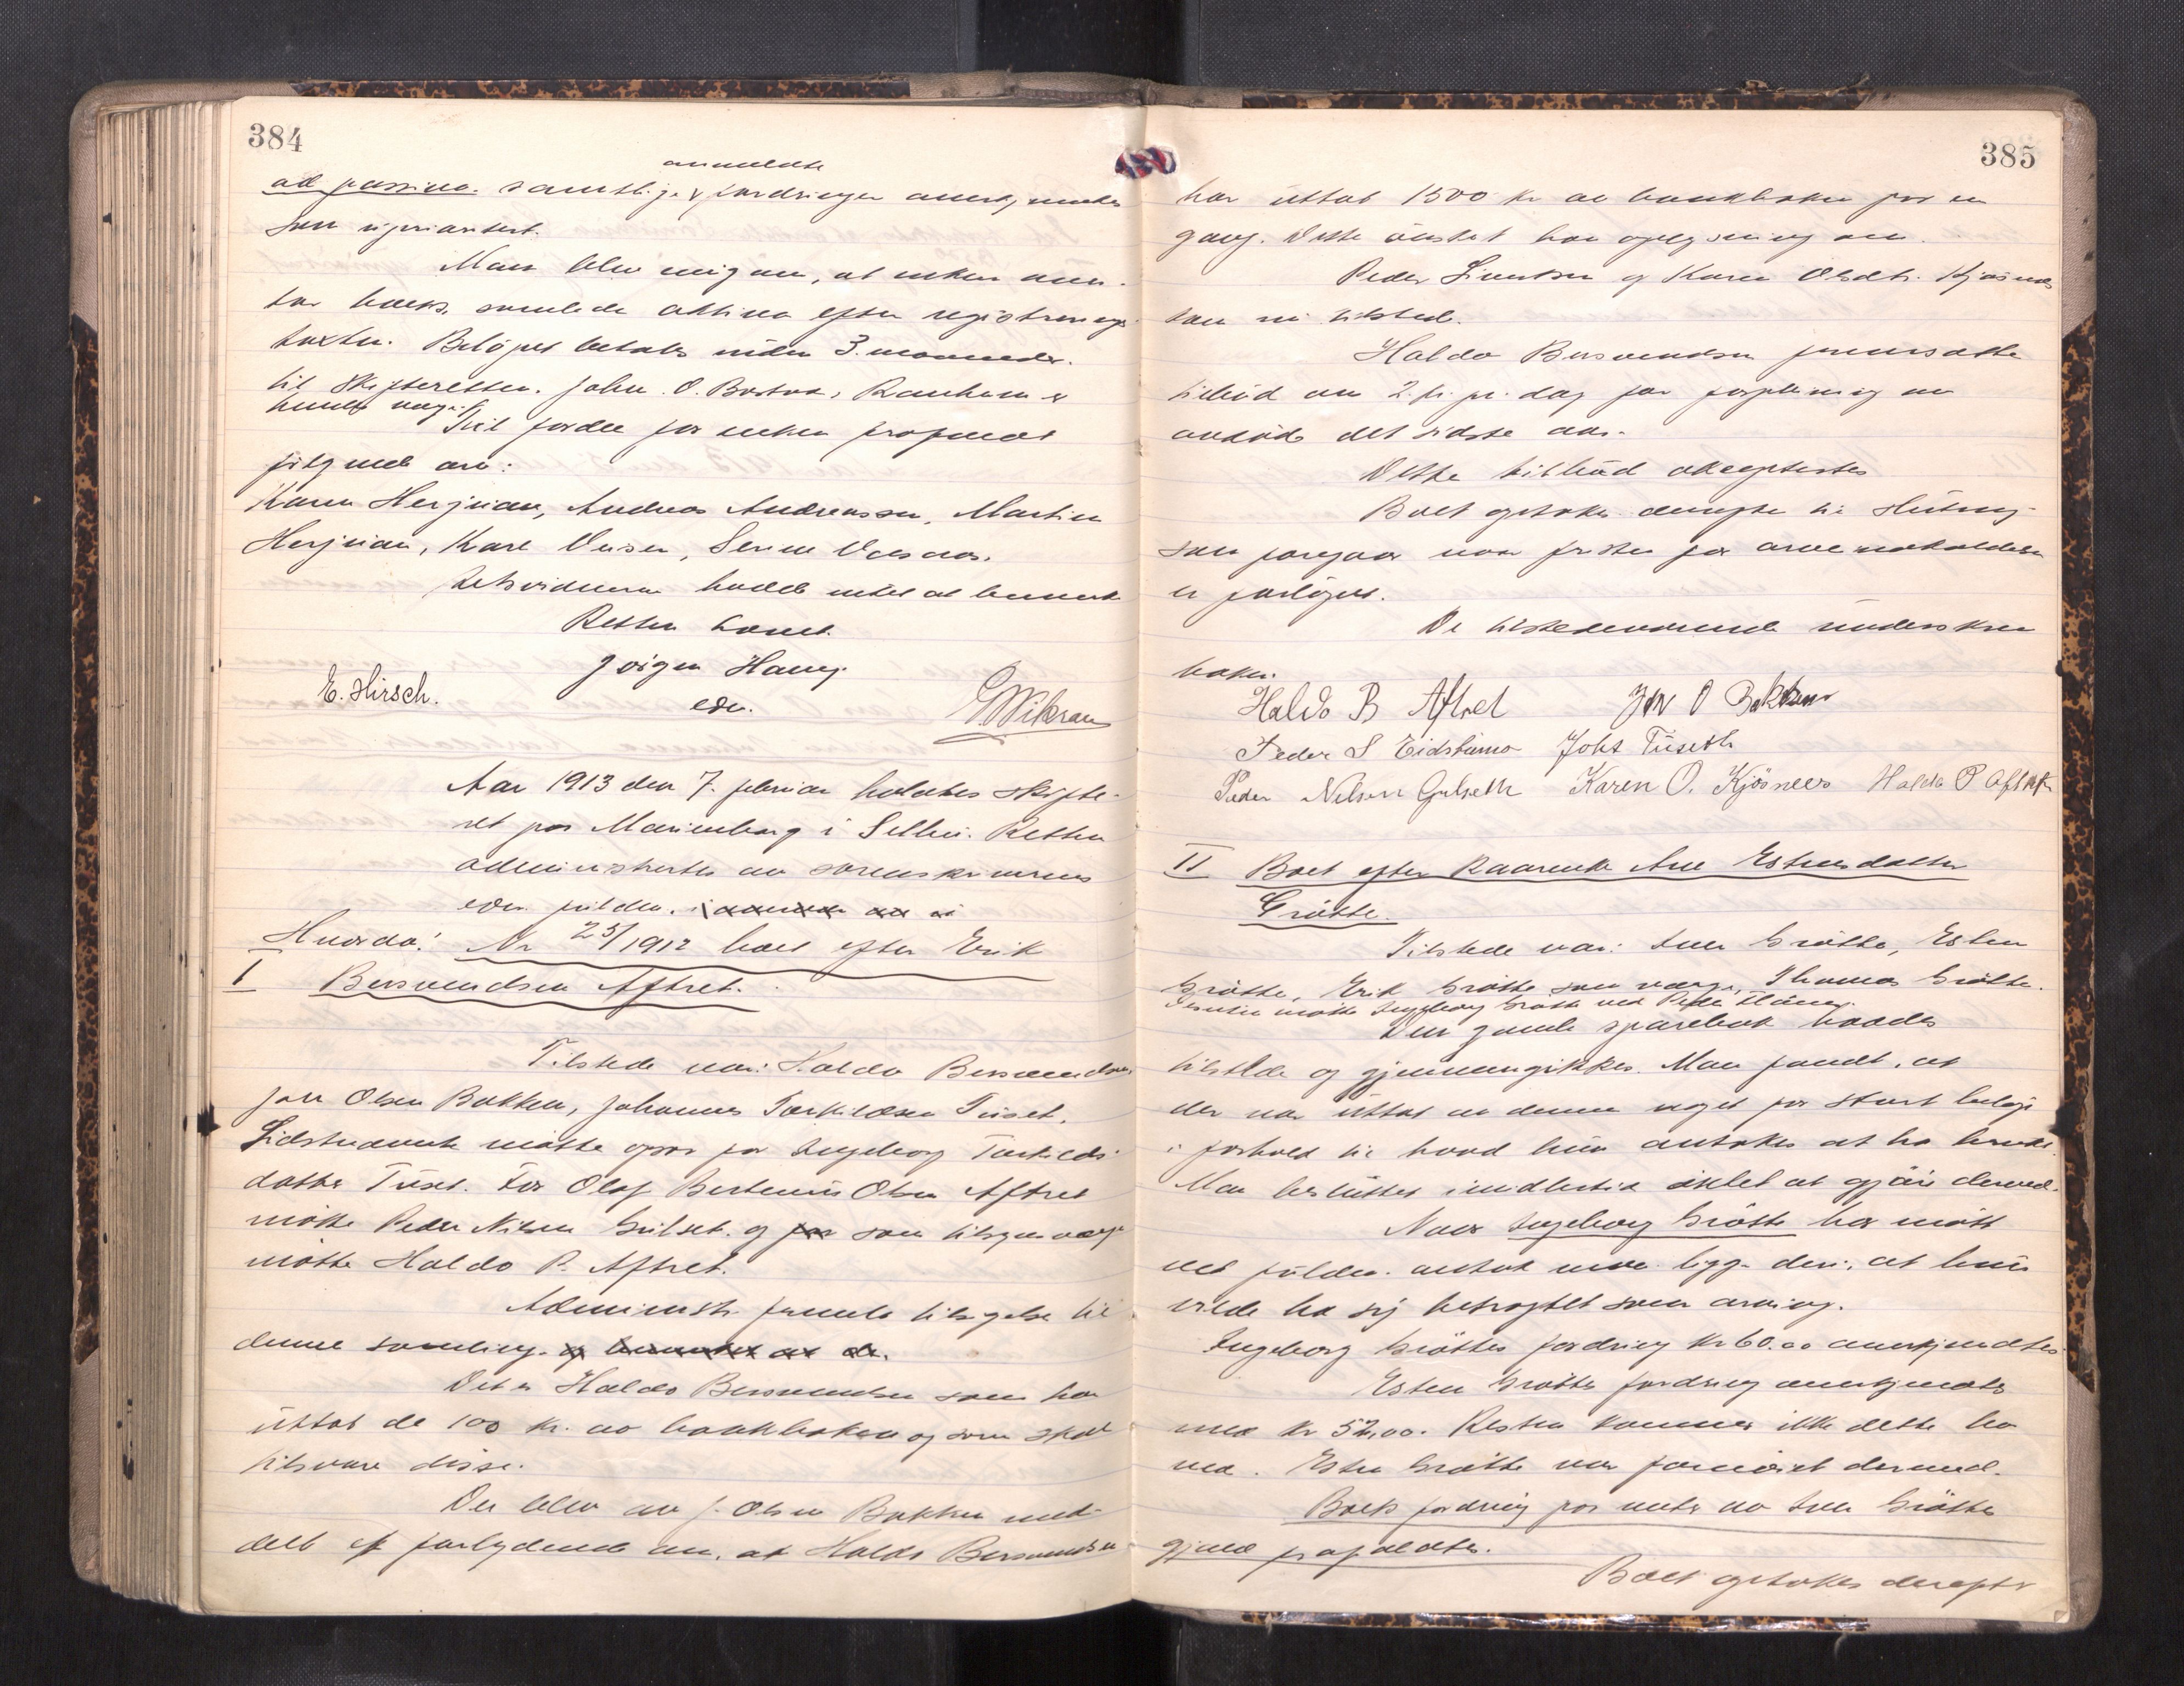 384
anmeldte
ad passiva. samtlige fordringer anerkjendtes
som uprioritert.
Man blev enig om, at enken over-
tar boets samlede aktiva efter registrerings-
taxten. Beløpet betales inden 3 maaneder
til skifteretten. John O. , Ranheim er
hendes verge.
Til fordel for enken frafaldt
følgende arv:
Karen Herjuan, Andreas Andreassen, Martin
Herjuan, Karl , 
Retsvidnerne hadde intet at bemerke
Retten hævet.
Jørgen Haug
edv.
E. Hirsch.
GWikran
Aar 1913 den 7. februar holdtes skifte-
ret paa Marienborg i Selbu. Retten
administrertes av sorenskriverens
edv. fuldm.
Hvorda: Nr 25/1912 boet efter Erik
I Bersvendsen Aftret.
Tilstede var: Haldo Bersvendsen
Jon Olsen Bakken, Johannes Torkildsen Tuset.
Sidstnævnte møtte ogsaa for Ingeborg Torkilds-
datter Tuset. For Olaf Bertinus Olsen Aftret
møtte Peder Nilsen Gulset. og for som tilsynsverge
møtte Haldo P. Aftret.
Administr. fremla tilsigelse til
denne samling.
Det er Haldo Bersvendsen som har
uttat de 100 kr. av bankboken og som skal
tilsvare disse.
Der blev av J. Olsen Bakken med-
delt et forlydende om, at Haldo Bersvendsen
385
har uttat 1500 kr av bankboken paa en
gang. Dette ønsket han oplysning om.
Peder Simonsen og Karen Olsdtr. Kjøsnes
kom nu tilstede.
Haldo Bersvendsen fremsatte
tilbud om 2 kr. pr. dag for forpleining av
avdøde det sidste aar.
Dette tilbud akcepteres
Boet optokes derefter til slutning
som foregaar naar fristen for arvemeldelsen
er forløpet.
De tilstedeværende underskrev
boken.
Haldo B Aftret Jon O Bakken
Peder S Eidstumo Johs Tuseth
Peder Nilsen Gulseth Karen O. Kjösnees Haldo P Aftret
II Boet efter kaarenke Ane Estensdatter
Grøtte.
Tilstede var: Iver Grøtte, Esten
Grøtte, Erik Grøtte som verge, Thomas Grøtte.
Desuten møtte Ingeborg Grøtte ved Peder 
Den gamle sparebok havdes
tilstede og gjennemgikkes. Man fandt, at
der var uttat av denne noget for stort beløp
i forhold til hvad hun antokes at ha brukt.
Man besluttet imidlertid intet at gjøre derved.
Naar Ingeborg Grøtte har møtt
ved fuldm. antok man ligge deri, at hun
vilde ha sig betragtet som arving.
Ingeborg Grøttes fordring kr 60.00 anerkjendtes
Esten Grøttes fordring anerkjendtes
med kr 52,00. Resten kunner ikke dette bo
ved. Esten Grøtte var fornøiet dermed.
Boets fordring paa renter av Iver Grøttes
gjæld frafaldtes.
Boet optokes derefter